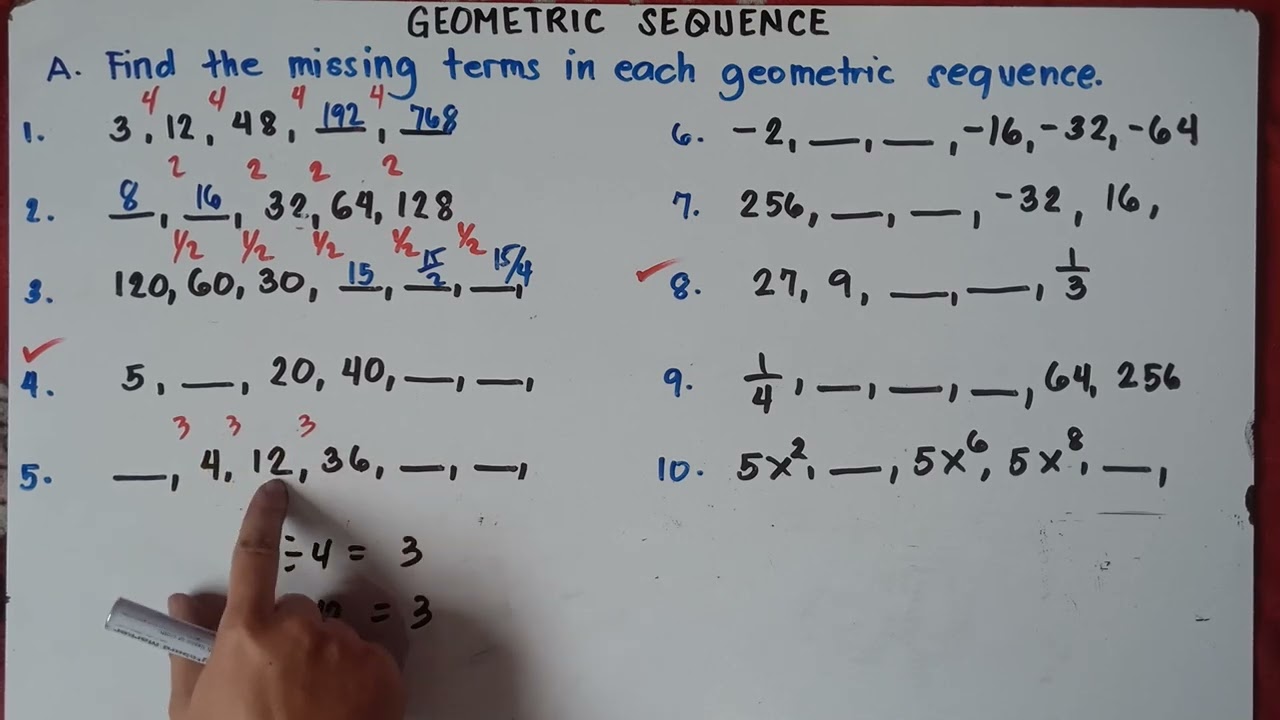 GEOMETRIC SEQUENCE
A. Find the missing terms in each geometric sequence.
4 4 4 4
1. 3, 12, 48, 192, 768
2 2 2 2
2. 8, 16, 32, 64, 128
1/2 1/2 1/2 1/2 1/2
3. 120, 60, 30, 15, 15/2, 15/4,
✓
4. 5, __, 20, 40, __, __,
3 3 3
5. __, 4, 12, 36, __, __,
÷ 4 = 3
= 3
6. -2, __, __, -16, -32, -64
7. 256, __, __, -32, 16,
✓ 8. 27, 9, __, __, 1/3
9. 1/4, __, __, __, 64, 256
10. 5x², __, 5x⁶, 5x⁸, __,